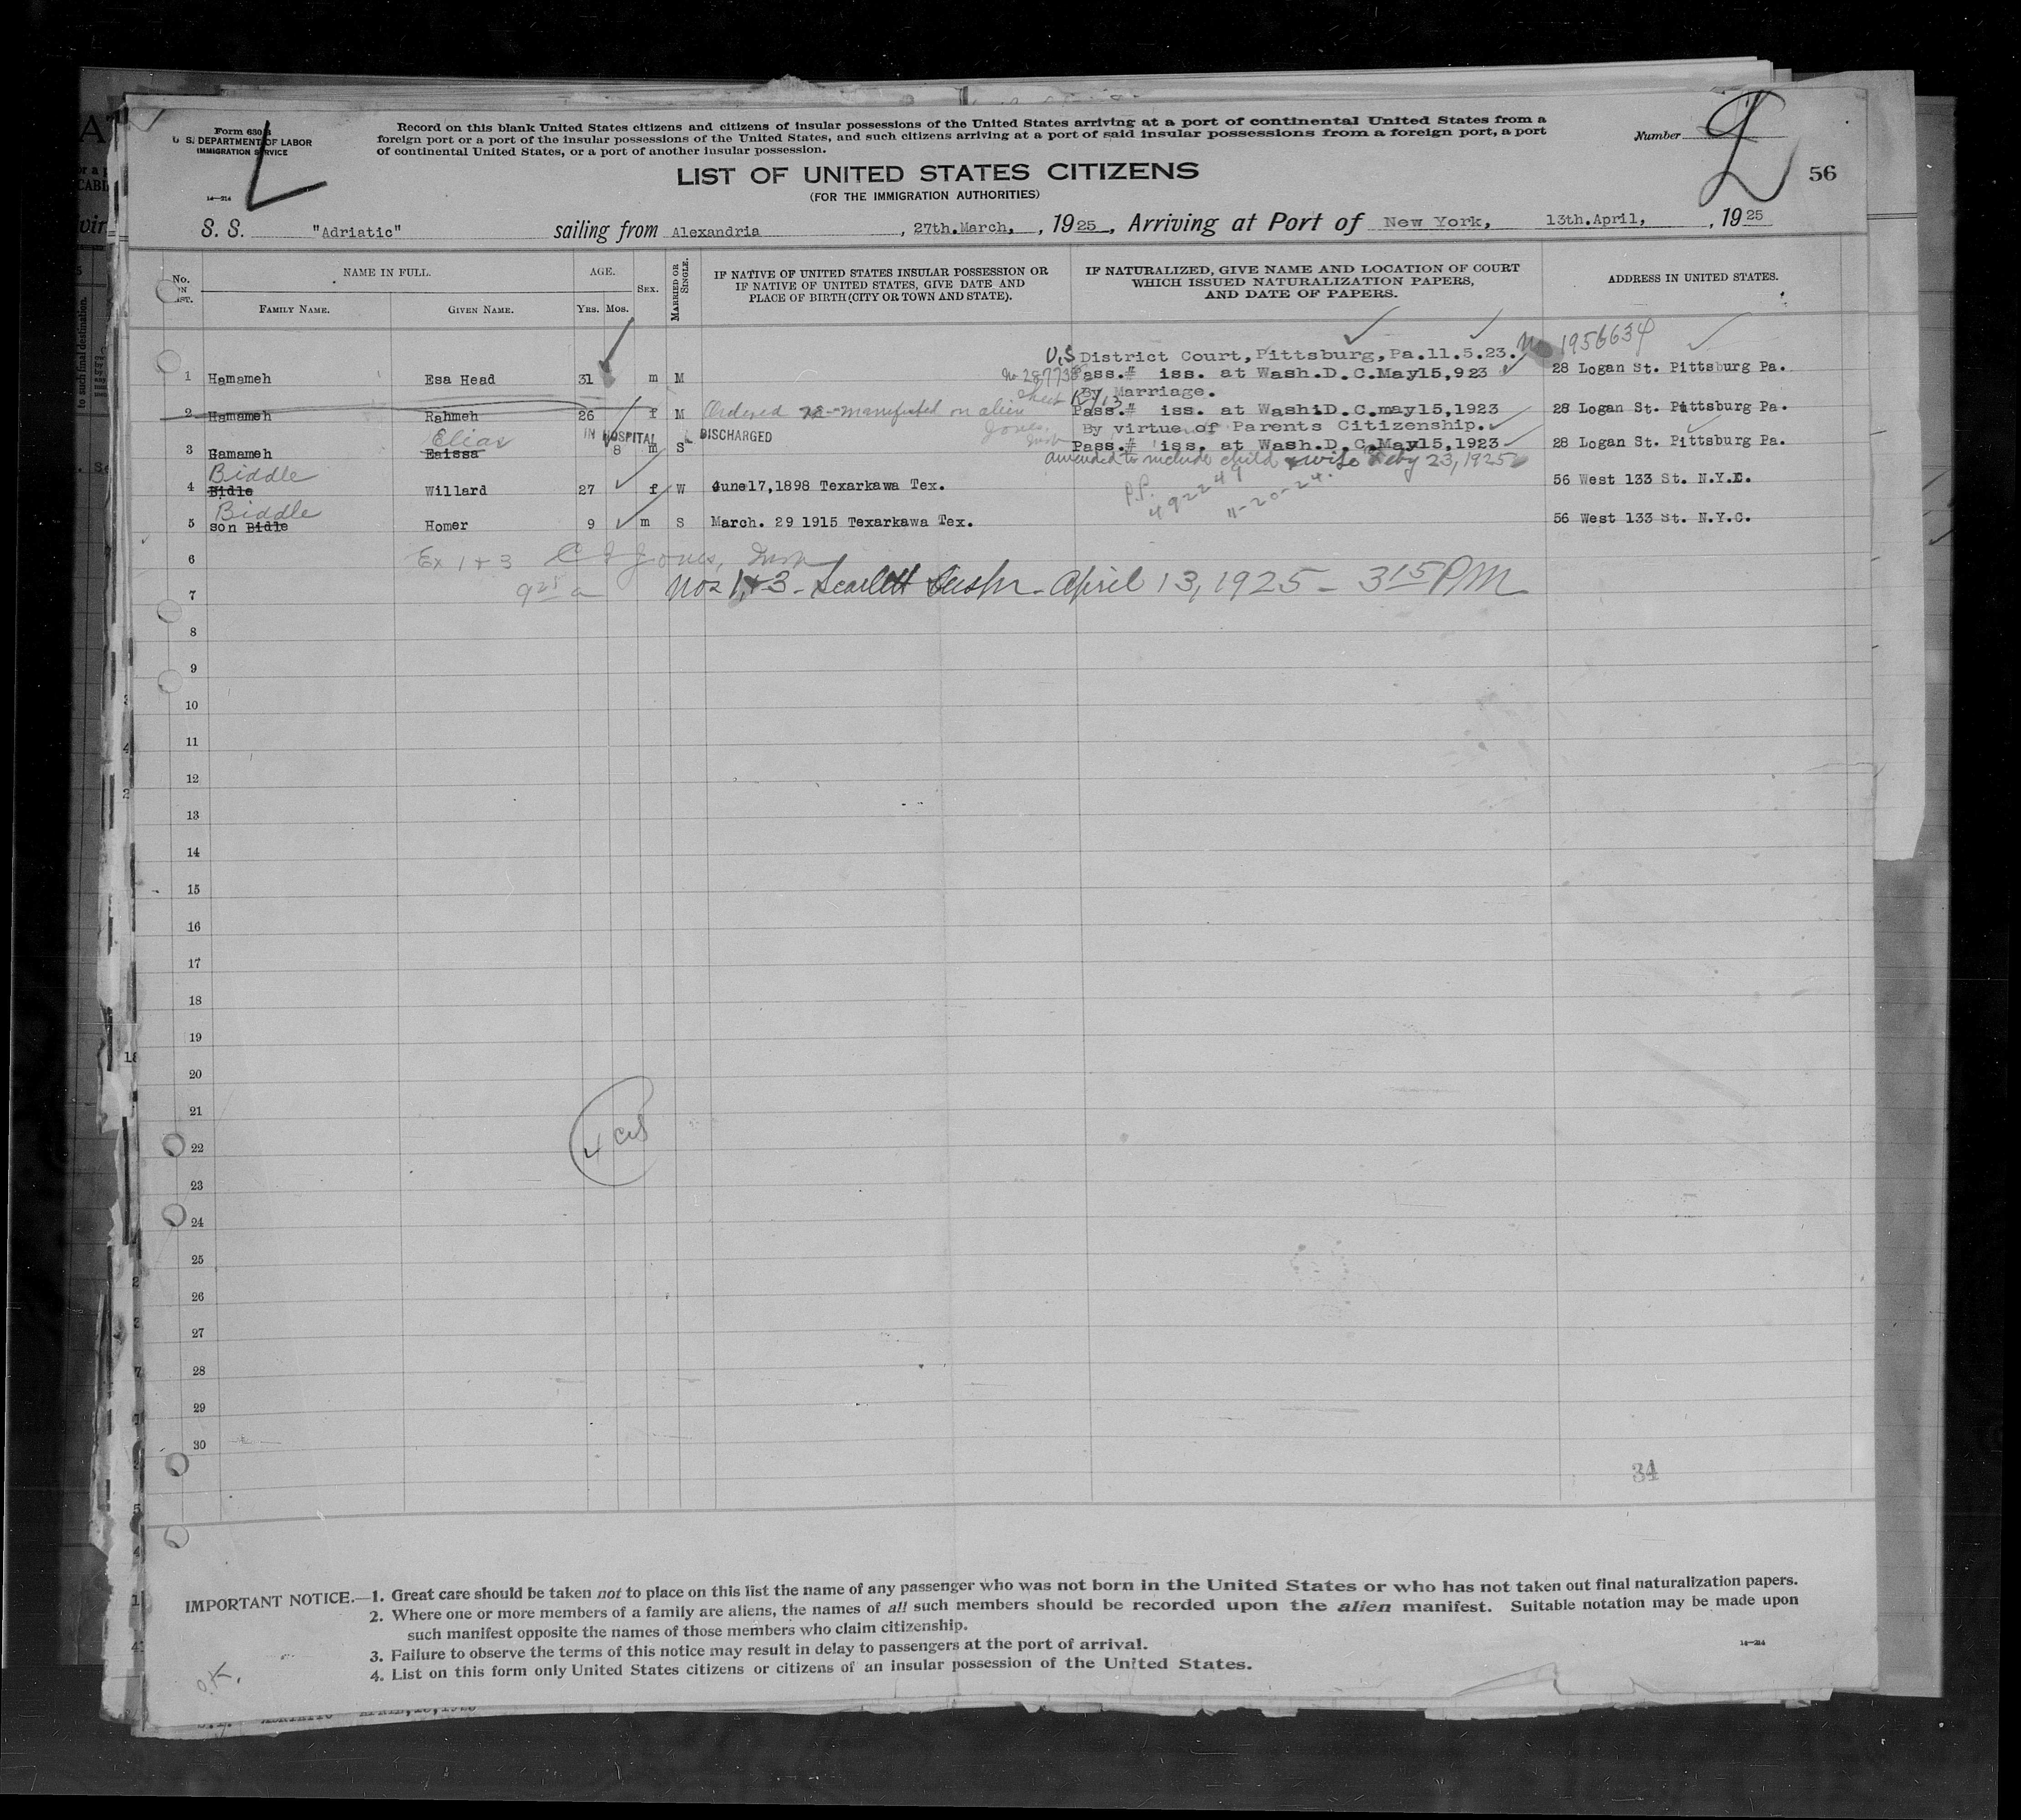 Form 630 a
U. S. DEPARTMENT OF LABOR
IMMIGRATION SERVICE
14—214
Record on this blank United States citizens and citizens of insular possessions of the United States arriving at a port of continental United States from a
foreign port or a port of the insular possessions of the United States, and such citizens arriving at a port of said insular possessions from a foreign port, a port
of continental United States, or a port of another insular possession.
Number
56
LIST OF UNITED STATES CITIZENS
(FOR THE IMMIGRATION AUTHORITIES)
S. S. "Adriatic" sailing from Alexandria, 27th.March, , 1925, Arriving at Port of New York, 13th.April, , 1925
No. IN LIST. NAME IN FULL. AGE. SEX. MARRIED OR SINGLE. IF NATIVE OF UNITED STATES INSULAR POSSESSION OR IF NATIVE OF UNITED STATES, GIVE DATE AND PLACE OF BIRTH (CITY OR TOWN AND STATE). IF NATURALIZED, GIVE NAME AND LOCATION OF COURT WHICH ISSUED NATURALIZATION PAPERS, AND DATE OF PAPERS. ADDRESS IN UNITED STATES.
FAMILY NAME. GIVEN NAME. YRS. MOS.
U.S District Court, Pittsburg, Pa.11.5.23. No 1956634
1 Hamameh Esa Head 31 m M Pass.# iss. at Wash.D.C.May15,923 28 Logan St. Pittsburg Pa.
By Marriage.
2 Hamameh Rahmeh 26 f M Ordered re-manifested on alien sheet Pass.# iss. at WashiD.C.may15,1923 28 Logan St. Pittsburg Pa.
Elias IN HOSPITAL DISCHARGED Jones, Insp By virtue of Parents Citizenship.
3 Hamameh Eaissa 8 m S Pass.# iss. at Wash.D.C.May15,1923 28 Logan St. Pittsburg Pa.
amended to include child & wife Feby 23, 1925
Biddle
4 Bidle Willard 27 f W June17,1898 Texarkawa Tex. P.P. 492249 11-20-24. 56 West 133 St. N.Y.C.
Biddle
5 son Bidle Homer 9 m S March. 29 1915 Texarkawa Tex. 56 West 133 St. N.Y.C.
6 Ex 1 + 3 Jones, Insp
7 925 a Nos 1 + 3 - Scarlett Inspr. April 13, 1925 - 315 PM
8
9
10
11
12
13
14
15
16
17
18
19
20
21
22
23
24
25
26
27
28
29
30
34
IMPORTANT NOTICE.—1. Great care should be taken not to place on this list the name of any passenger who was not born in the United States or who has not taken out final naturalization papers.
2. Where one or more members of a family are aliens, the names of all such members should be recorded upon the alien manifest. Suitable notation may be made upon
such manifest opposite the names of those members who claim citizenship.
3. Failure to observe the terms of this notice may result in delay to passengers at the port of arrival.
4. List on this form only United States citizens or citizens of an insular possession of the United States.
14—214
O.K.